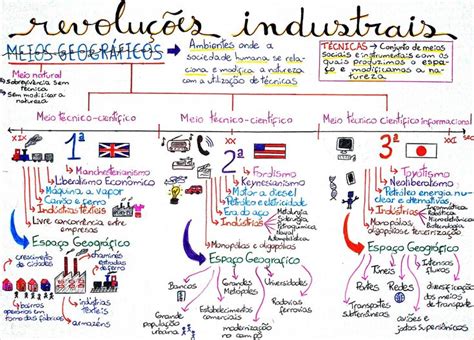 revoluções industrais
MEIOS GEOGRÁFICOS
Ambientes onde a
sociedade humana se rela-
ciona e modifica a natureza
com a utilização de técnicas
TÉCNICAS → Conjunto de meios
sociais e instrumentais com os
quais produzimos o espa-
ço e modificamos a na-
tureza
Meio natural
Sobrevivência sem
técnica
Sem modificar a
natureza
Meio Técnico-científico
Meio técnico-científico
Meio Técnico Científico Informacional
XIX
XX
XXI
1ª
Manchesterianismo
Liberalismo Econômico
Máquina a vapor
Carvão e ferro
Indústrias têxteis
Livre concorrência entre
empresas
Espaço Geográfico
crescimento
de cidades
chaminés
estradas de
ferro
bairros
operários em
torno das fábricas
indústrias
têxteis
armazéns
2ª
Fordismo
Keynesianismo
Motor a diesel
Petróleo e elétrica
Era do aço
Indústrias
Metalurgia
Siderurgia
Petroquímica
Naval
Automobilística
Monopólios e oligopólios
Espaço Geográfico
Bancos
Grandes
Metrópoles
Universidades
Grande
população
urbana
Estabelecimentos
comerciais
Rodovias
ferrovias
modernização
no campo
3ª
Toyotismo
Neoliberalismo
Petróleo, energia nu-
clear e alternativas
Indústrias
Informática
Robótica
Microeletrônica
Biotecnologia
Monopólios, oligopólios e terceirização
Espaço Geográfico
Túneis
Portos
Redes
Intensos
fluxos
diversificação
dos meios de
transporte
Transportes
subterrâneos
aviões e
jatos supersônicos